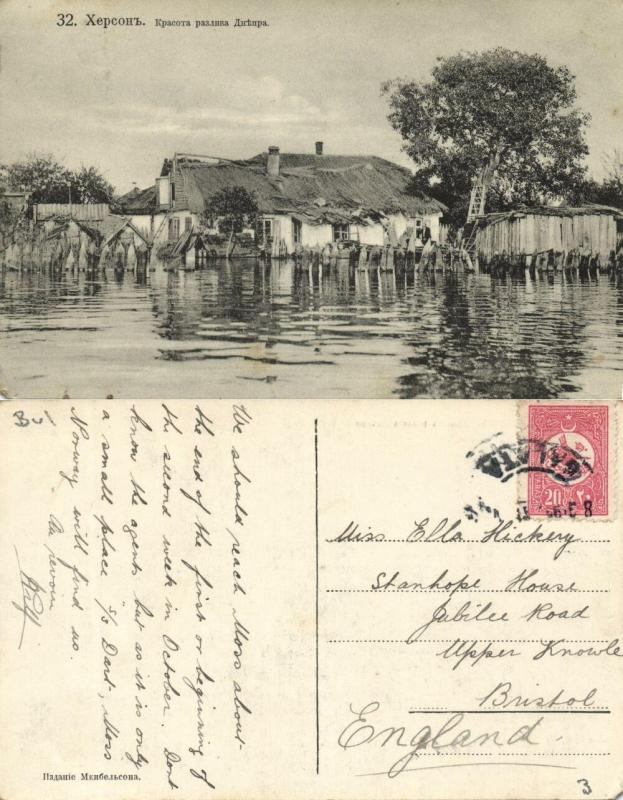 32. Херсонъ. Красота разлива Днѣпра.
We should reach Moss about
the end of the first or beginning of
the second week in October. Dont
know the agents but as it is only
a small place S/S Dart, Moss
Norway will find us.
Au revoir
Miss Ella Hickery
Stanhope House
Jubilee Road
Upper Knowle
Bristol
England
20
GALATA
Изданіе Мкибельсона.
3